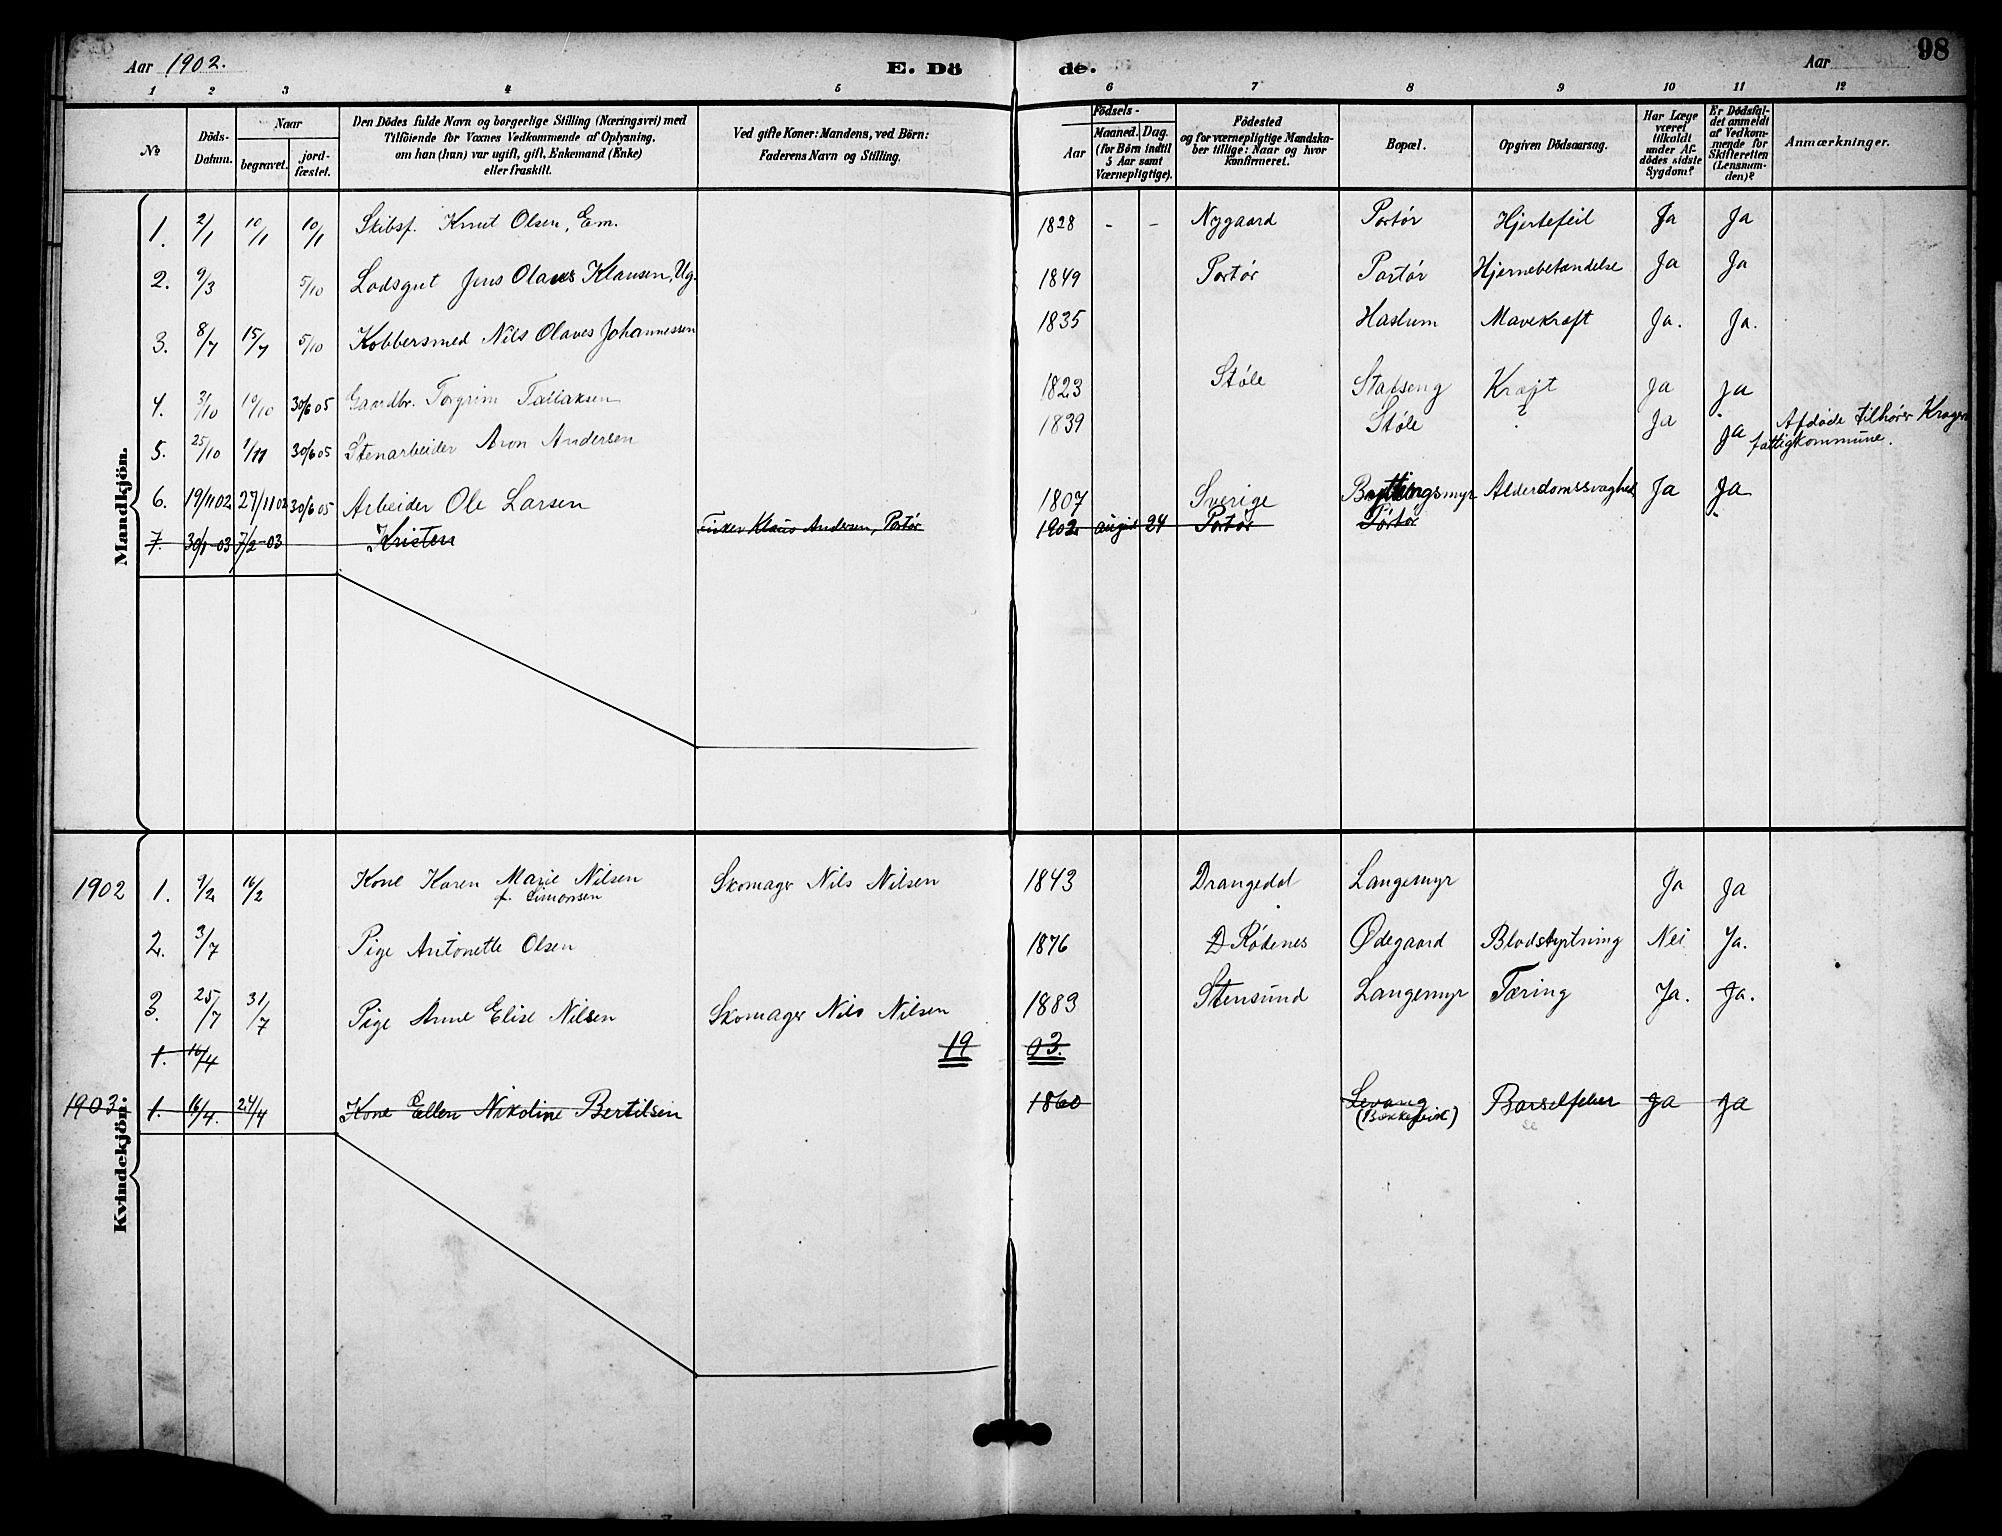 Aar 1902. E. Dö de. Aar 98
1 2 3 4 5 6 7 8 9 10 11 12
No Döds-Datum. Naar begravet. jord-fæstet. Den Dödes fulde Navn og borgerlige Stilling (Næringsvei) med Tilföiende for Voxnes Vedkommende af Oplysning, om han (hun) var ugift, gift, Enkemand (Enke) eller fraskilt. Ved gifte Koner: Mandens, ved Börn: Faderens Navn og Stilling. Födsels- Aar Maaned. Dag. (for Börn indtil 5 Aar samt Værnepligtige). Födested og for værnepligtige Mandska-ber tillige: Naar og hvor konfirmeret. Bopæl. Opgiven Dödsaarsag. Har Læge været tilkaldt under Af-dödes sidste Sygdom? Er Dödsfal-det anmeldt af Vedkom-mende for Skifteretten (Lensman-den)? Anmærkninger.
Mandkjön.
1. 2/1 10/1 10/1 Skibsf. Knut Olsen, Em. 1828 - - Nygaard Portør Hjertefeil Ja Ja
2. 9/3 5/10 Lodsgut Jens Olaus Klausen, Ug. 1849 Portør Portør Hjernebetændelse Ja Ja
3. 8/7 15/7 5/10 Kobbersmed Nils Olaves Johannessen 1835 Haslum Mavekræft Ja. Ja.
4. 3/10 10/10 30/6 05 Gaardbr. Torgrim Tallaksen 1823 Støle Stabseng Kræft Ja Ja
5. 25/10 1/11 30/6 05 Stenarbeider Aron Andersen 1839 Støle ? Ja Ja Afdøde tilhører Kragerø fattigkommune.
6. 19/11 02 27/11 02 30/6 05 Arbeider Ole Larsen 1807 Sverige Alderdomssvaghed Ja Ja
7. 30/1-03 7/2-03 Kristen Fisker Klaus Andersen, Portør 1902 august 24 Portør Portør
1902 1. 9/2 16/2 Kone Karen Marie Nilsen f. Simonsen Skomager Nils Nilsen 1843 Drangedal Langemyr Ja Ja
2. 3/7 Pige Antonette Olsen 1876 Rødenes Ødegaard Blodstyrtning Nei Ja.
3. 25/7 31/7 Pige Anne Elise Nilsen Skomager Nils Nilsen 1883 Stensund Langemyr Tæring Ja. Ja.
1. 16/4 19 03.
1903 1. 16/4. 24/4 Kone Ellen Nikoline Bertilsen 1860 Levang Barselfeber Ja Ja
Kvindekjön.